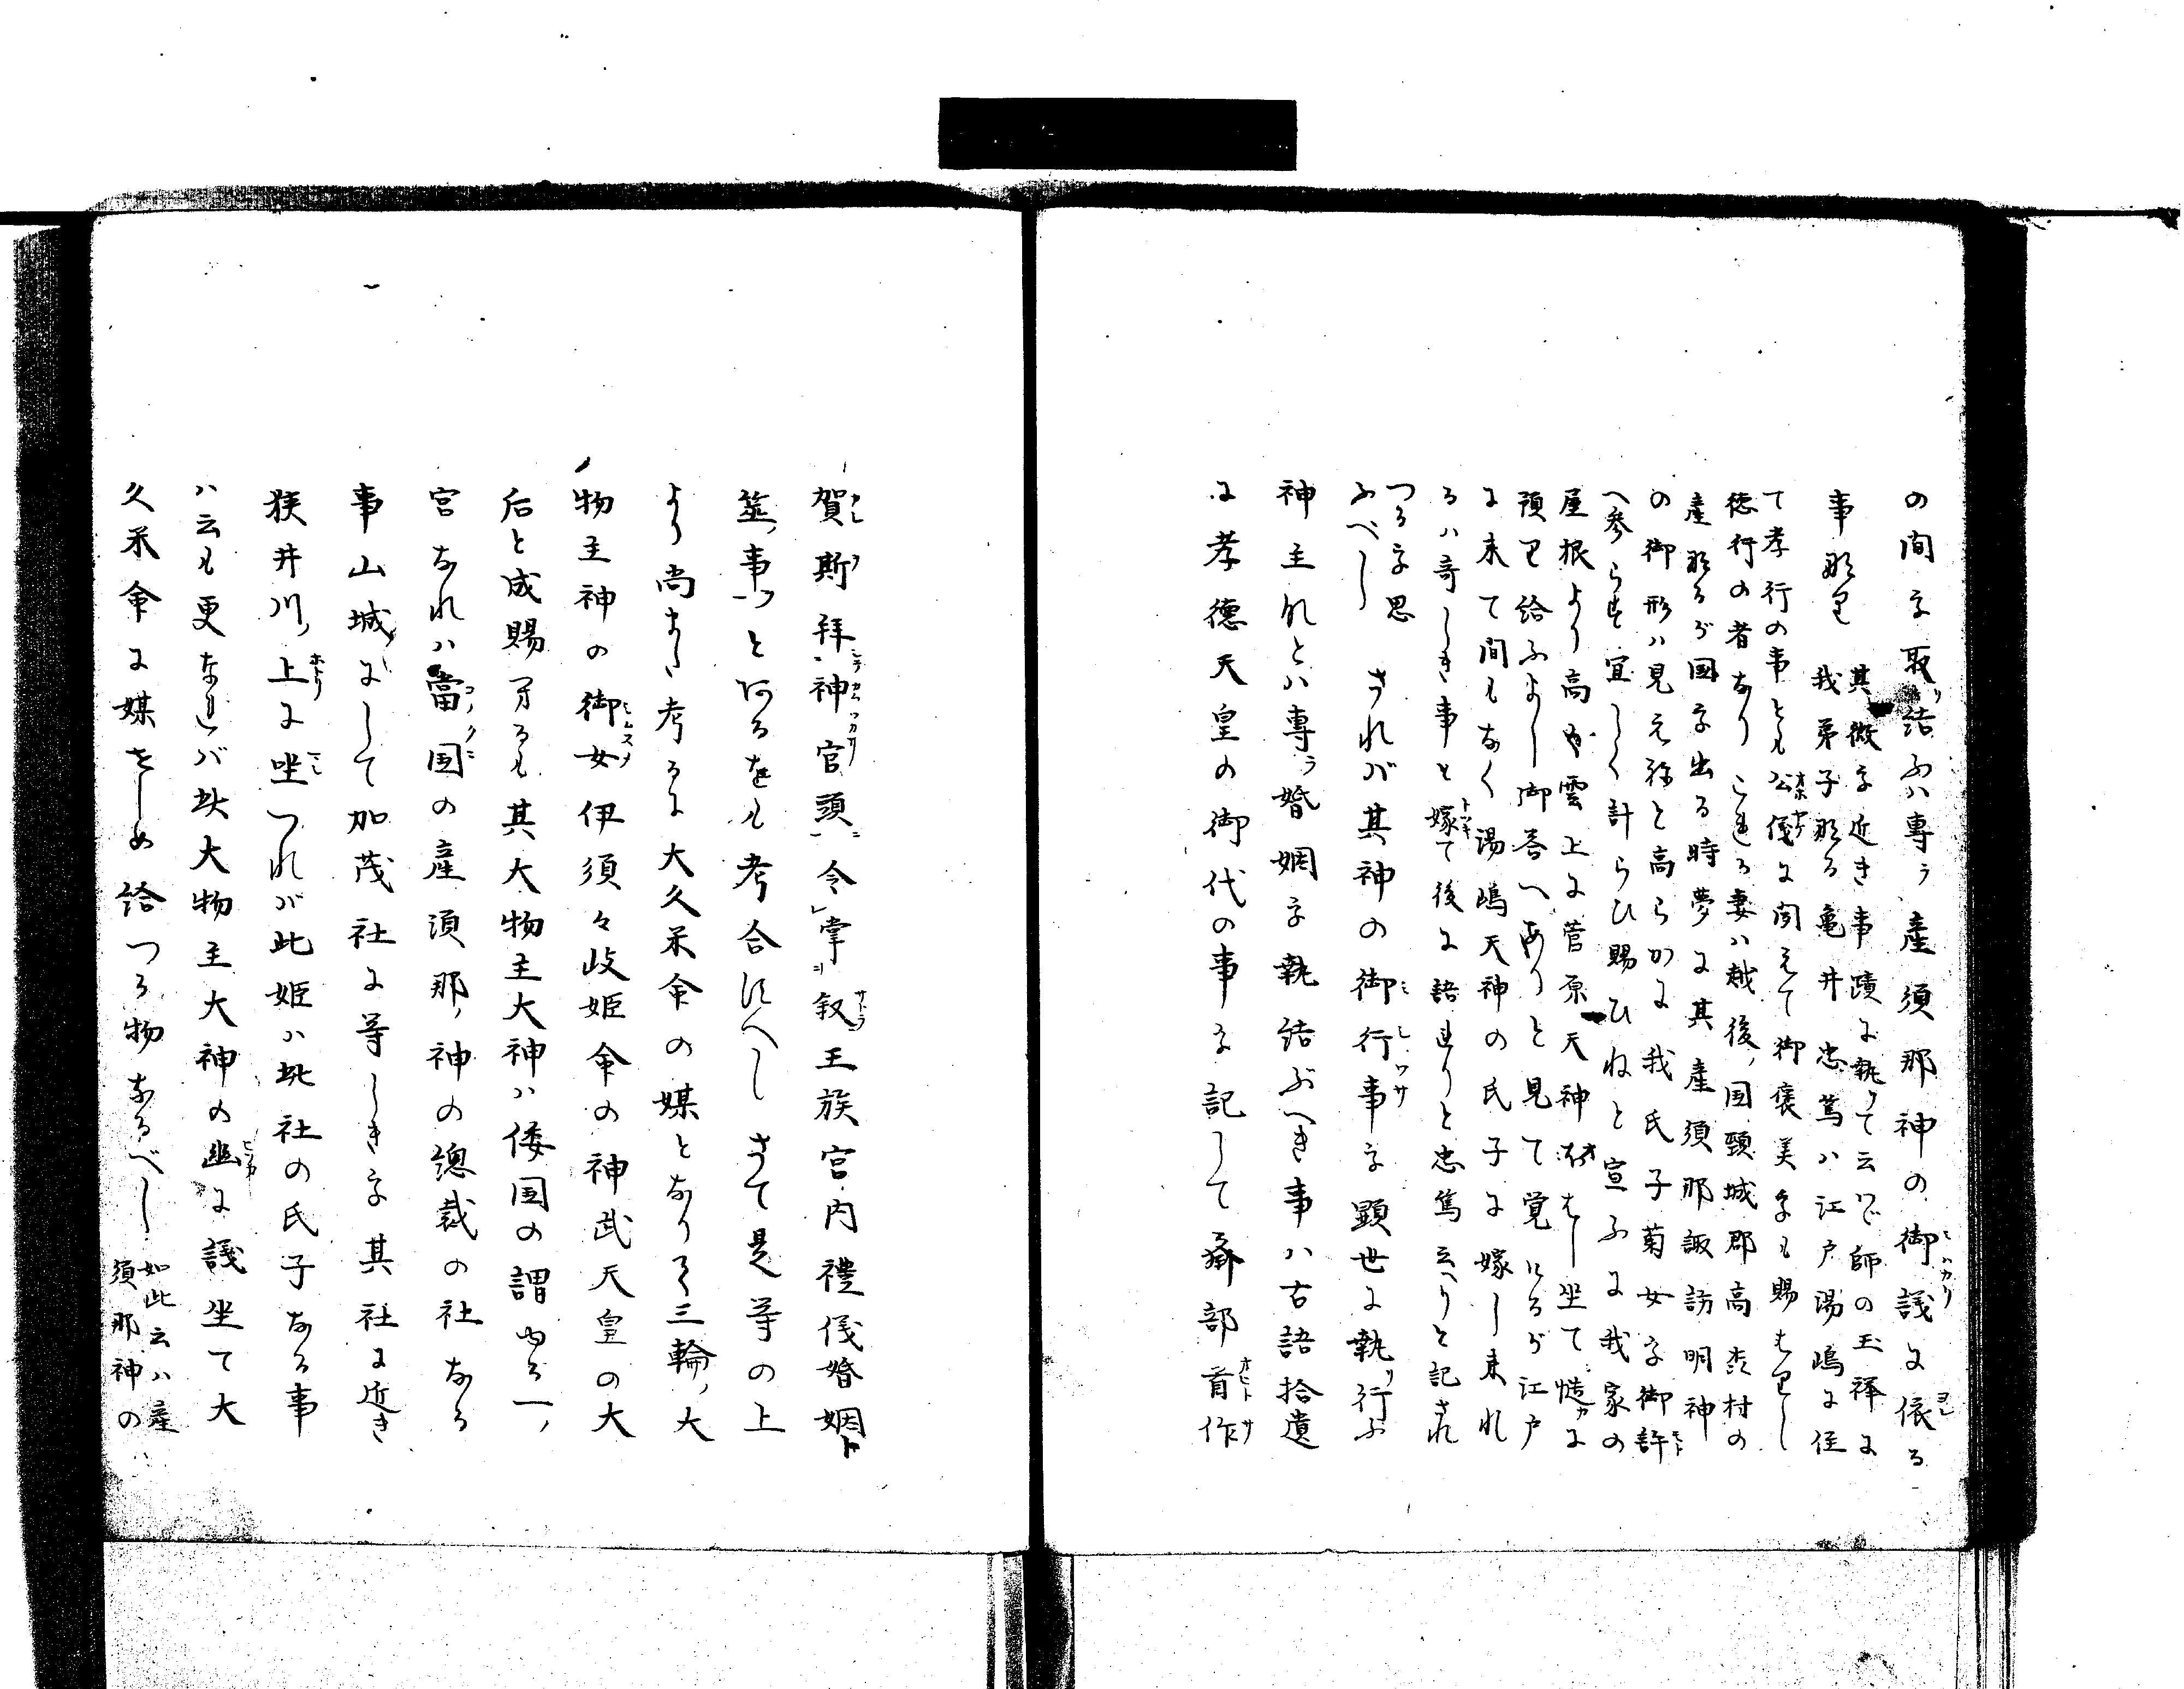 の間を取結ふハ専ラ産須那神の御議に依る
事那り 其徴を近き事蹟に執りて云ハゞ師の玉襷に
我弟子那る亀井忠篤ハ江戸湯嶋に住
て孝行の事とも公儀に聞えて御褒美をも賜はりし
徳行の者なりこれる妻ハ越後ノ国頸城郡高 村の
産那るが国を出る時夢に其産須那諏訪明神
の御形ハ見え祢と高らかに我氏子菊女を御許
へ参らす宜しく計らひ賜ひねと宣ふに我家の
屋根より高き雲上に菅原ノ天神おはし坐て慥に
預り給ふよし御答へありと見て覚けるが江戸
に来て間もなく湯嶋天神の氏子に嫁し来れ
るハ奇しき事と嫁て後に語れりと忠篤云へりと記され
つるを思
ふべし されバ其神の御行事を顕世に執り行ふ
神主れとハ専ラ婚姻を執結ぶへき事ハ古語拾遺
に孝徳天皇の御代の事を記して斎部首作
賀斯拜神官頭令掌叙王族宮内禮儀婚姻卜
筮ノ事ヿとあるをも考合すへしさて是等の上
より尚よく考るに大久米命の媒となりて三輪ノ大
物主神の御女伊須々岐姫命の神武天皇の大
后と成賜ふるも其大物主大神ハ倭国の謂ゆる一ノ
宮なれハ當国の産須那ノ神の總裁の社なる
事山城にして加茂社に等しきを其社に近き
狭井川ノ上に坐つれバ此姫ハ此社の氏子なる事
ハ云も更なれバ此大物主大神の幽に議坐て大
久米命に媒をしめ給つる物なるべし 如此云ハ産
須那神の